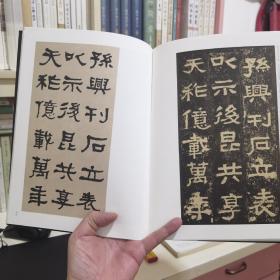 孫興刊石立表
以示後昆共享
天祚億載萬年
孫興刊石立表
以示後昆共享
天祚億載萬年